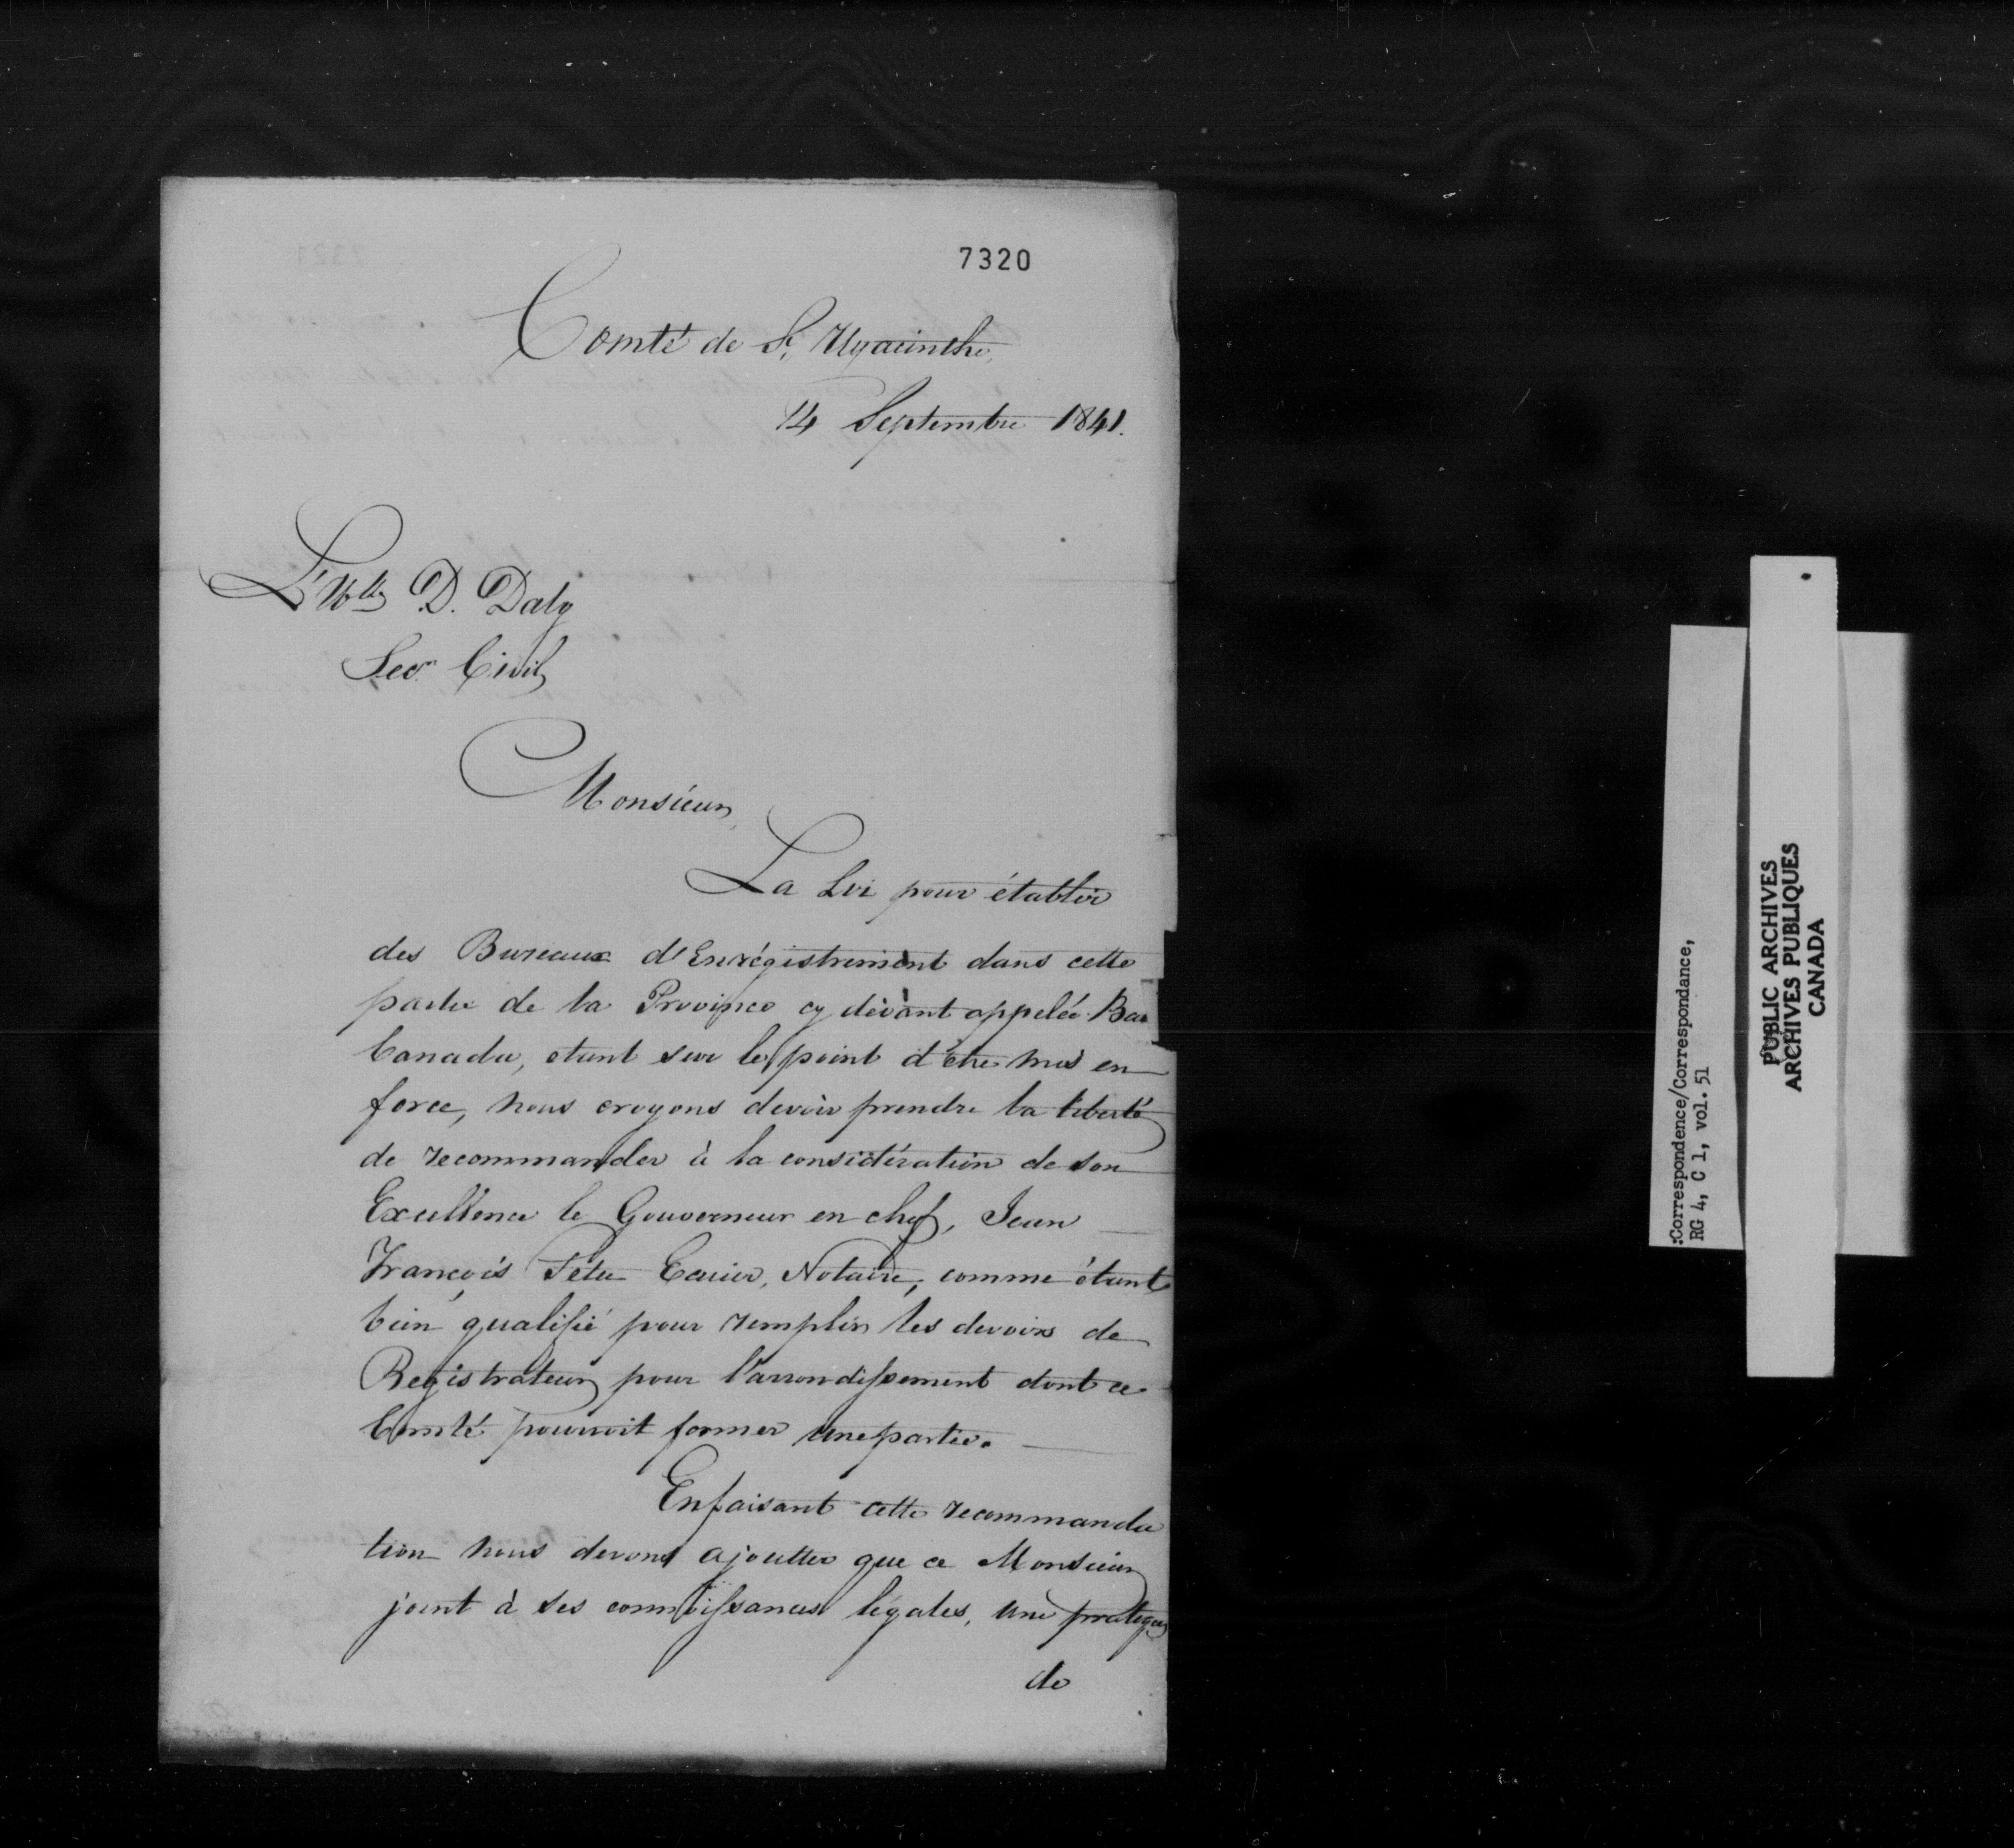 7320
Comté de St Hyacinthe,
14 Septembre 1841.
L'Hble D. Daly
Secr Civil
Monsieur,
La Loi pour établir
des Bureaux d'Enrégistrement dans cette
partie de la Province cy dévant appelée Bas
Canada, étant sur le point d'être mis en
force, nous croyons devoir prendre la liberté
de recommander à la considération de son
Excellence le Gouverneur en chef, Jean
François Têtu Ecuier, Notaire, comme étant
bien qualifié pour remplir les devoirs de
Registrateur pour l'arrondissement dont ce
Comté pourroit former une partie.
En faisant cette recommanda
tion nous devons ajoutter que ce Monsieur
joint à ses connoissances légales, une pratique
de
:Correspondence/Correspondance,
RG 4, C 1, vol. 51
PUBLIC ARCHIVES
ARCHIVES PUBLIQUES
CANADA